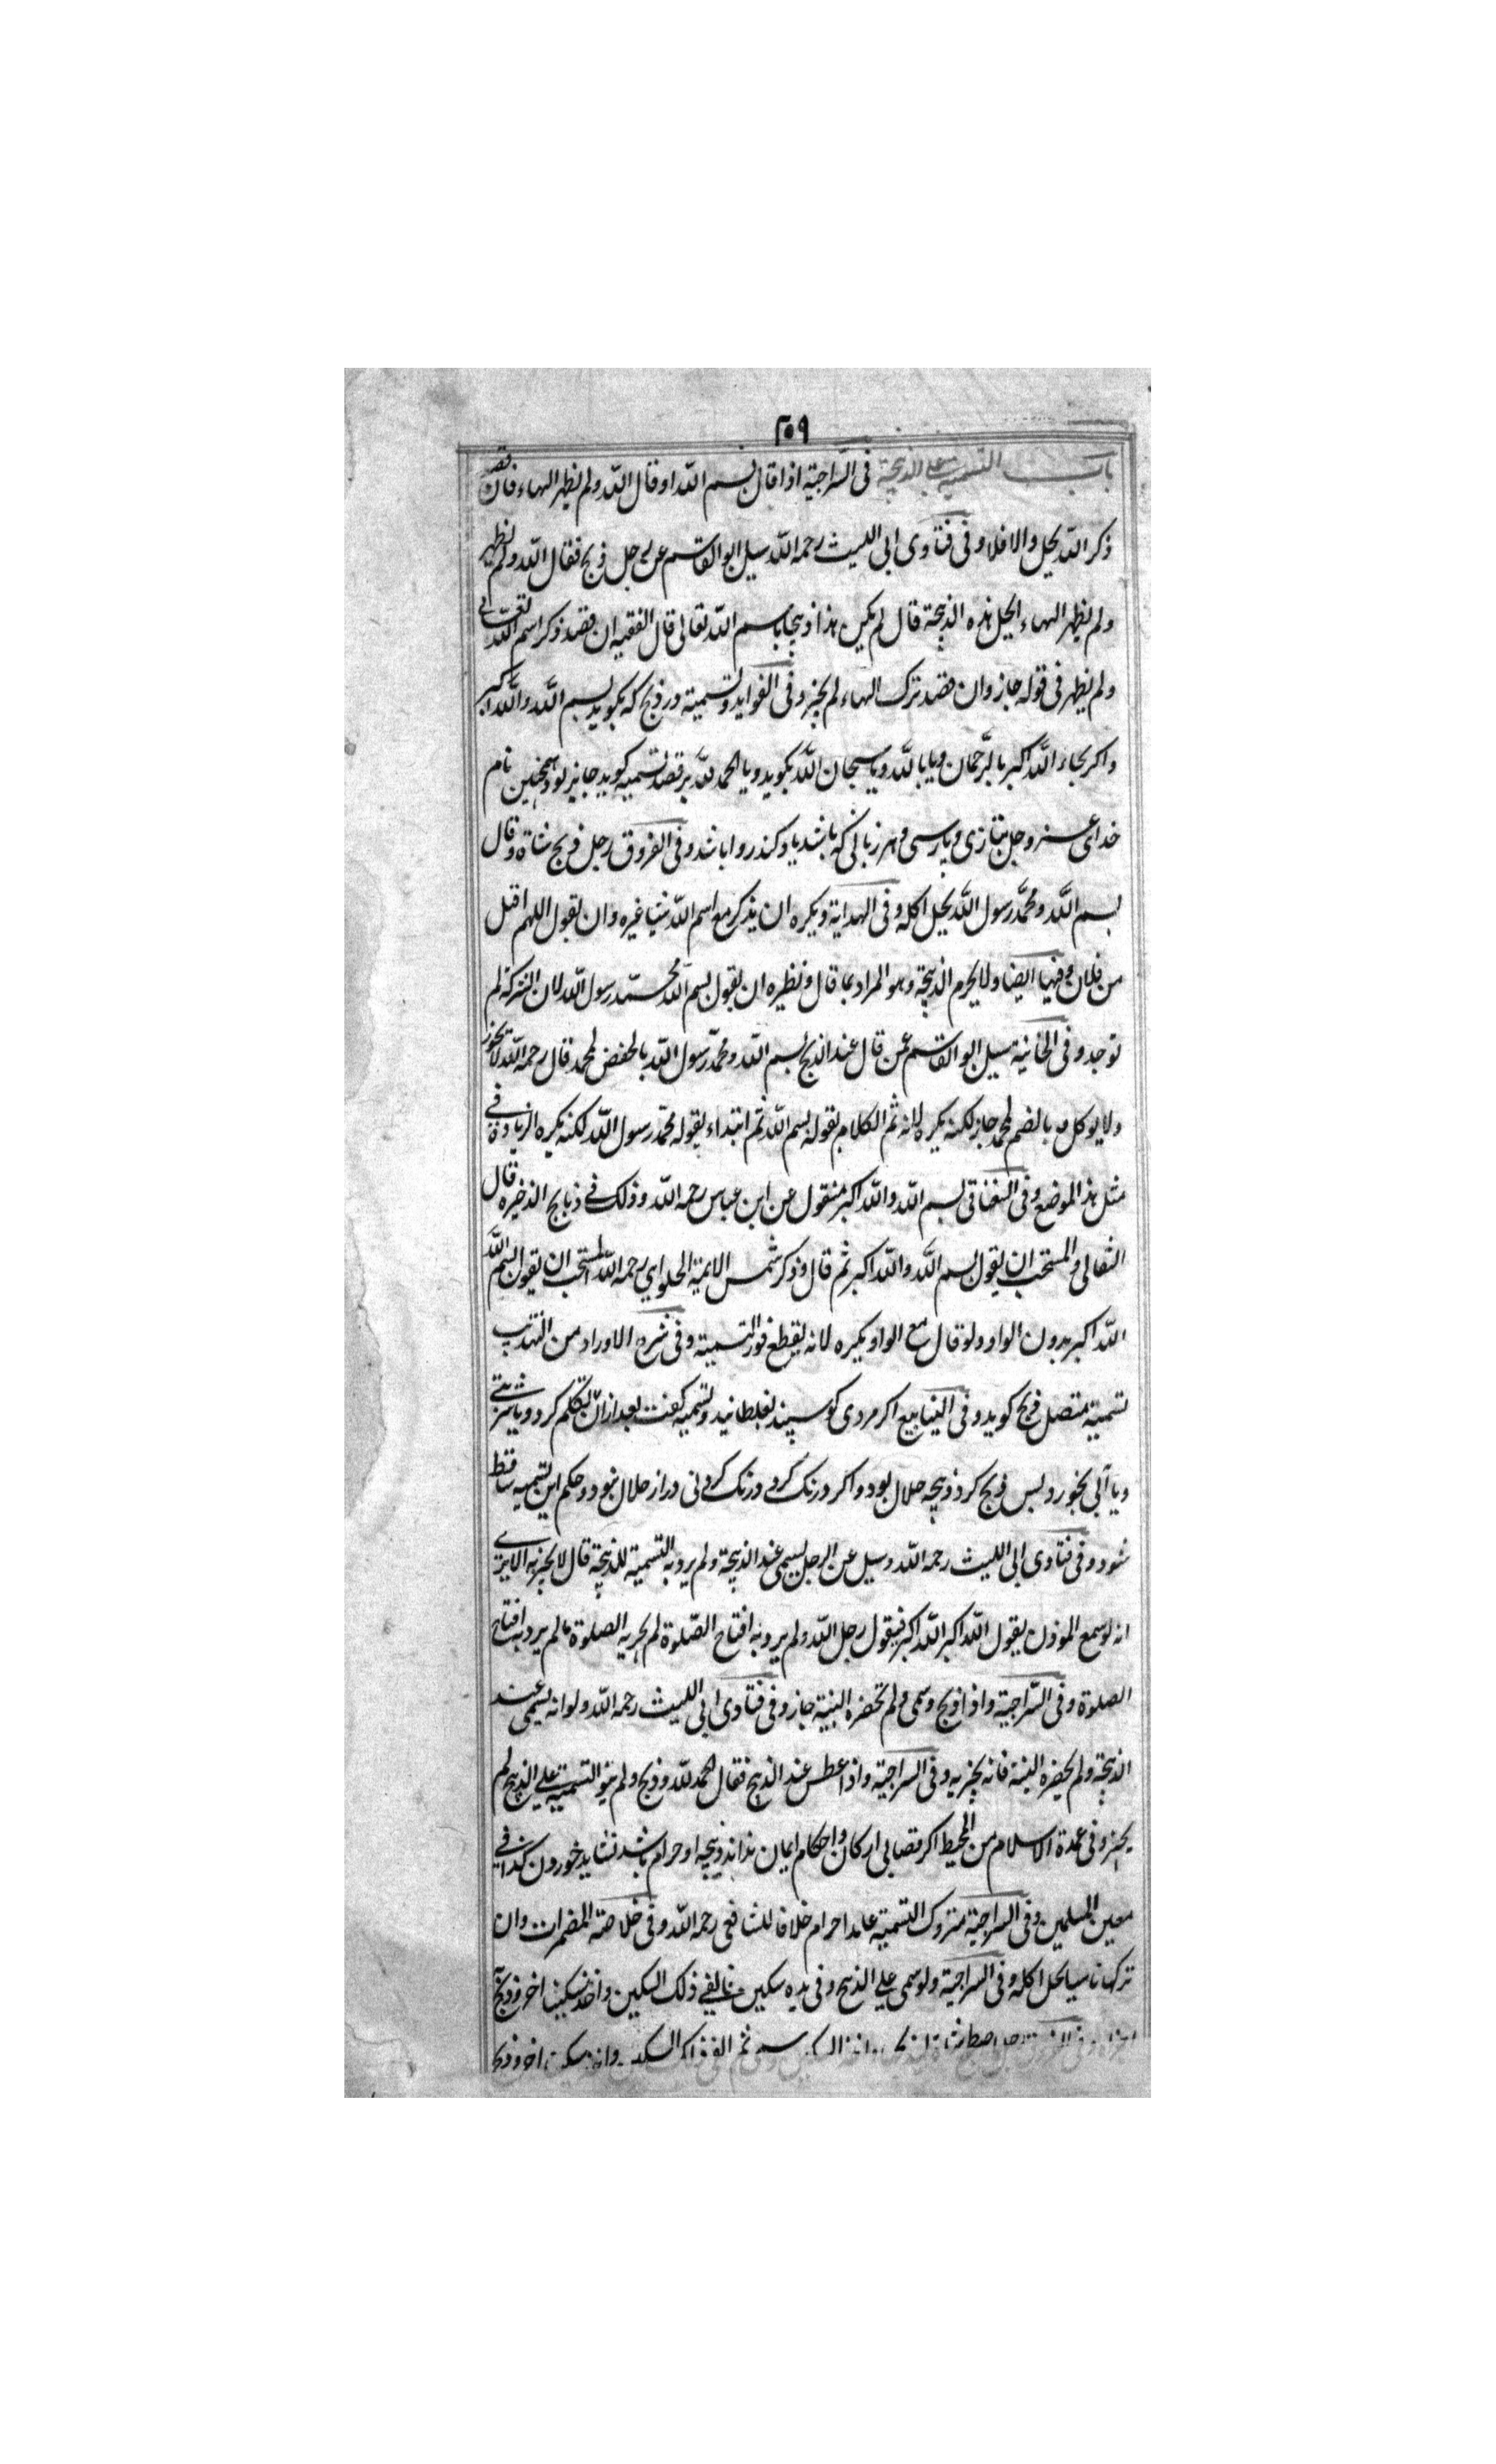 ٢٥٩
باب التسمية على الذبيحة فى السراجية اذا قال بسم الله او قال الله ولم يظهر الهاء فان قصد
ذكر الله يحل والا فلا و فى فتاوى ابى الليث رحمه الله سيل ابو القاسم عن رجل ذبح فقال الله ولم يظهر
ولم يظهر الهاء ايحل هذه الذبيحة قال لم يكن هذا ذبيحا باسم الله تعالى قال الفقيه ان قصد ذكر اسم الله تعالى
ولم يظهر فى قوله جاز وان قصد ترك الهاء لم يجز وفى الفوايد وتسمية در ذبح كه بكويد بسم الله والله اكبر
واكر بجاء الله اكبر بالرحمان ويا بالله ويا سبحان الله بكويد ويا الحمد لله بر قصد تسميه كويد جايز بود وهمچنين نام
خداى عز وجل بتازى وپارسى وبهر زبانى كه باشد ياد كند روا باشد وفى الفروق رجل ذبح شاة وقال
بسم الله ومحمد رسول الله يحل اكله وفى الهداية ويكره ان يذكر مع اسم الله شيا غيره وان يقول اللهم اقبل
من فلان وفيها ايضا ولا يحرم الذبيحة وهو المراد بما قال ونظيره ان يقول بسم الله محمد رسول الله لان الشركة لم
توجد وفى الخانية سيل ابو القاسم عن قال عند الذبح بسم الله ومحمد رسول الله بالخفض لمحمد قال رحمه الله لا يجوز
ولا يوكل وبالضم لمحمد جاز لكنه يكره لانه ثم الكلام بقوله بسم الله ثم ابتداء بقوله محمد رسول الله لكنه يكره الزيادة فى
مثل هذا الموضع وفى السغناقى بسم الله والله اكبر منقول عن ابن عباس رحمه الله وذلك فى ذبايح الذخيره قال
البقالى والمستحب ان يقول بسم الله والله اكبر ثم قال وذكر شمس الايمة الحلوايى رحمه الله المستحب ان يقول بسم الله
الله اكبر بدون الواو ولو قال مع الواو يكره لانه يقطع فور التسمية وفى شرح الاوراد من التهذيب
تسمية متصل ذبح كويد وفى الينابيع اكر مردى كوسپند بغلطانيد وتسميه كفت بعد از ان تكلم كرد ويا شربتى
ويا آبى بخورد پس ذبح كرد ذبيحه حلال بود واكر درنك كرد درنك كردنى دراز حلال نبود وحكم اين تسميه ساقط
شود وفى فتاوى ابى الليث رحمه الله وسيل عن الرجل يسمى عند الذبيحة ولم يرد به التسمية للذبيحة قال لا يجزيه الا يرى
انه لو سمع الموذن يقول الله اكبر الله اكبر فيقول رجل الله ولم يرد به افتتاح الصلوة لم يجز به الصلوة ما لم يرد به افتتاح
الصلوة وفى السراجية واذا ذبح وسمى ولم تحضره النية جاز وفى فتاوى ابى الليث رحمه الله ولو انه يسمى عند
الذبيحة ولم يحضره النية فانه يجزيه وفى السراجية واذا عطس عند الذبح فقال الحمد لله وذبح ولم ينو التسمية على الذبح لم
يجز وفى عمدة الاسلام من المحيط اكر قصابى اركان واحكام ايمان نداند ذبيحه او حرام باشد نشايد خوردن كذا فى
معين المسلمين وفى السراجية متروك التسمية عامدا حرام خلافا للشافعى رحمه الله وفى خلاصة المضمرات وان
تركها ناسيا يحل اكله وفى السراجية ولو سمى على الذبح وفى يده سكين فالقى ذلك السكين واخذ سكينا اخر وذبح
وسمى ثم القى ذاك السكين واخذ سكين اخر وذبح